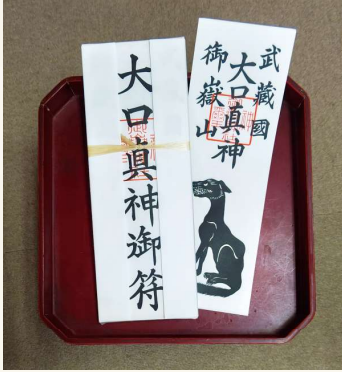 大口真神御符
武蔵國
大口真神
御嶽山